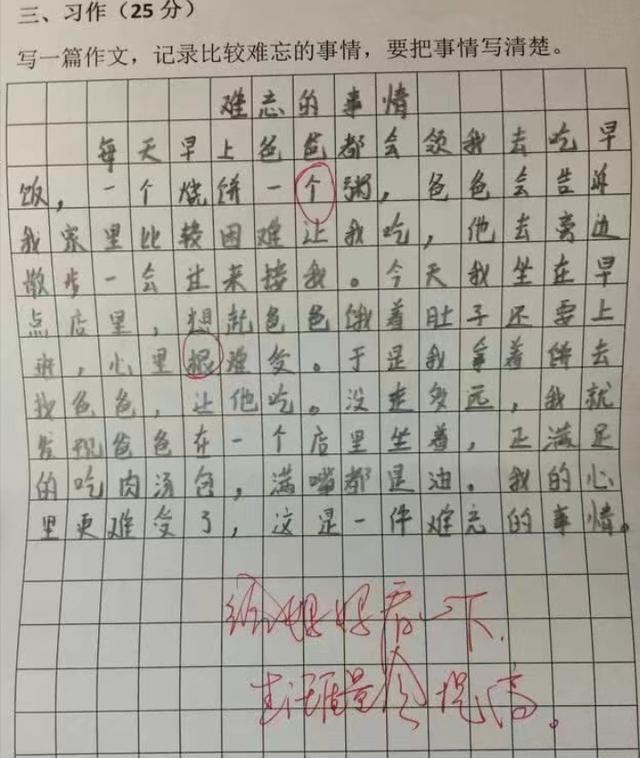 三、习作（25 分）
写一篇作文，记录比较难忘的事情，要把事情写清楚。
难忘的事情
每天早上爸爸都会领我去吃早
饭，一个烧饼一个粥，爸爸会告诉
我家里比较困难让我吃，他去旁边
散步一会过来接我。今天我坐在早
点店里，想起爸爸饿着肚子还要上
班，心里根难受。于是我拿着饼去
找爸爸，让他吃。没走多远，我就
发现爸爸在一个店里坐着，正满足
的吃肉汤包，满嘴都是油。我的心
里更难受了，这是一件难忘的事情。
给妈妈看一下，
生活质量会提高。